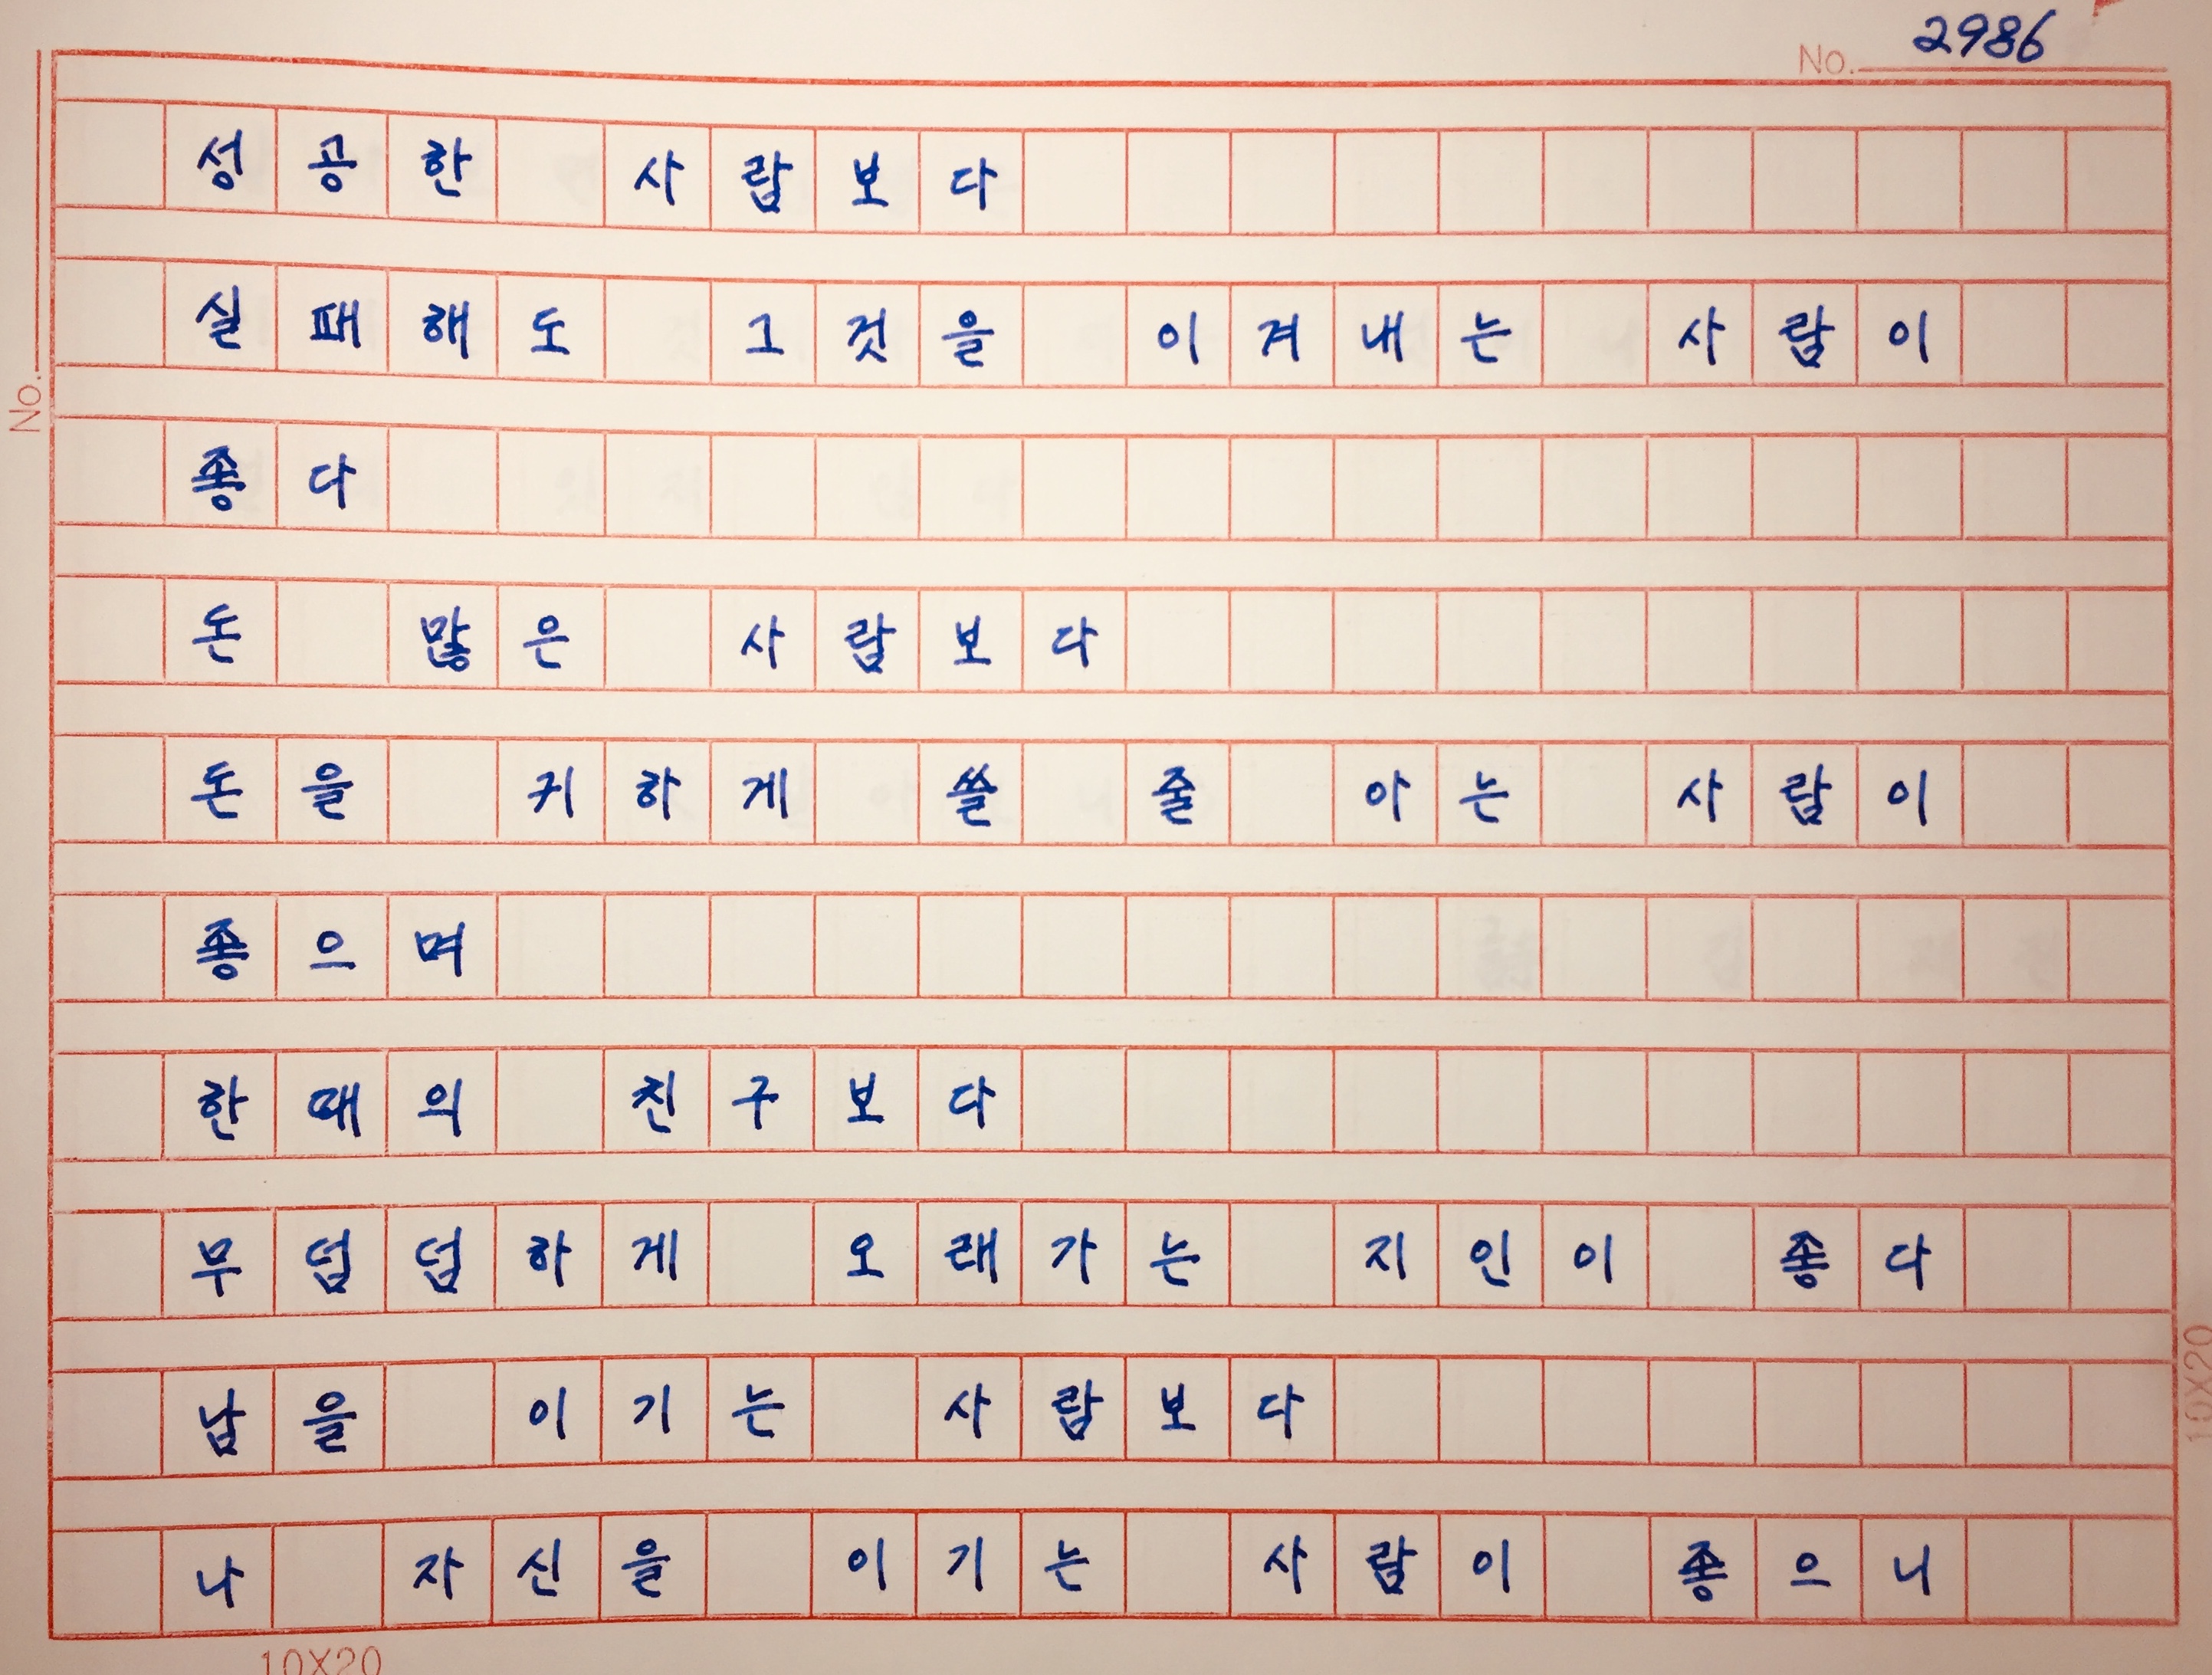 No. 2986
성공한 사람보다
실패해도 그것을 이겨내는 사람이
No.
좋다
돈 많은 사람보다
돈을 귀하게 쓸 줄 아는 사람이
좋으며
한때의 친구보다
무덤덤하게 오래가는 지인이 좋다
남을 이기는 사람보다
10X20
나 자신을 이기는 사람이 좋으니
10X20